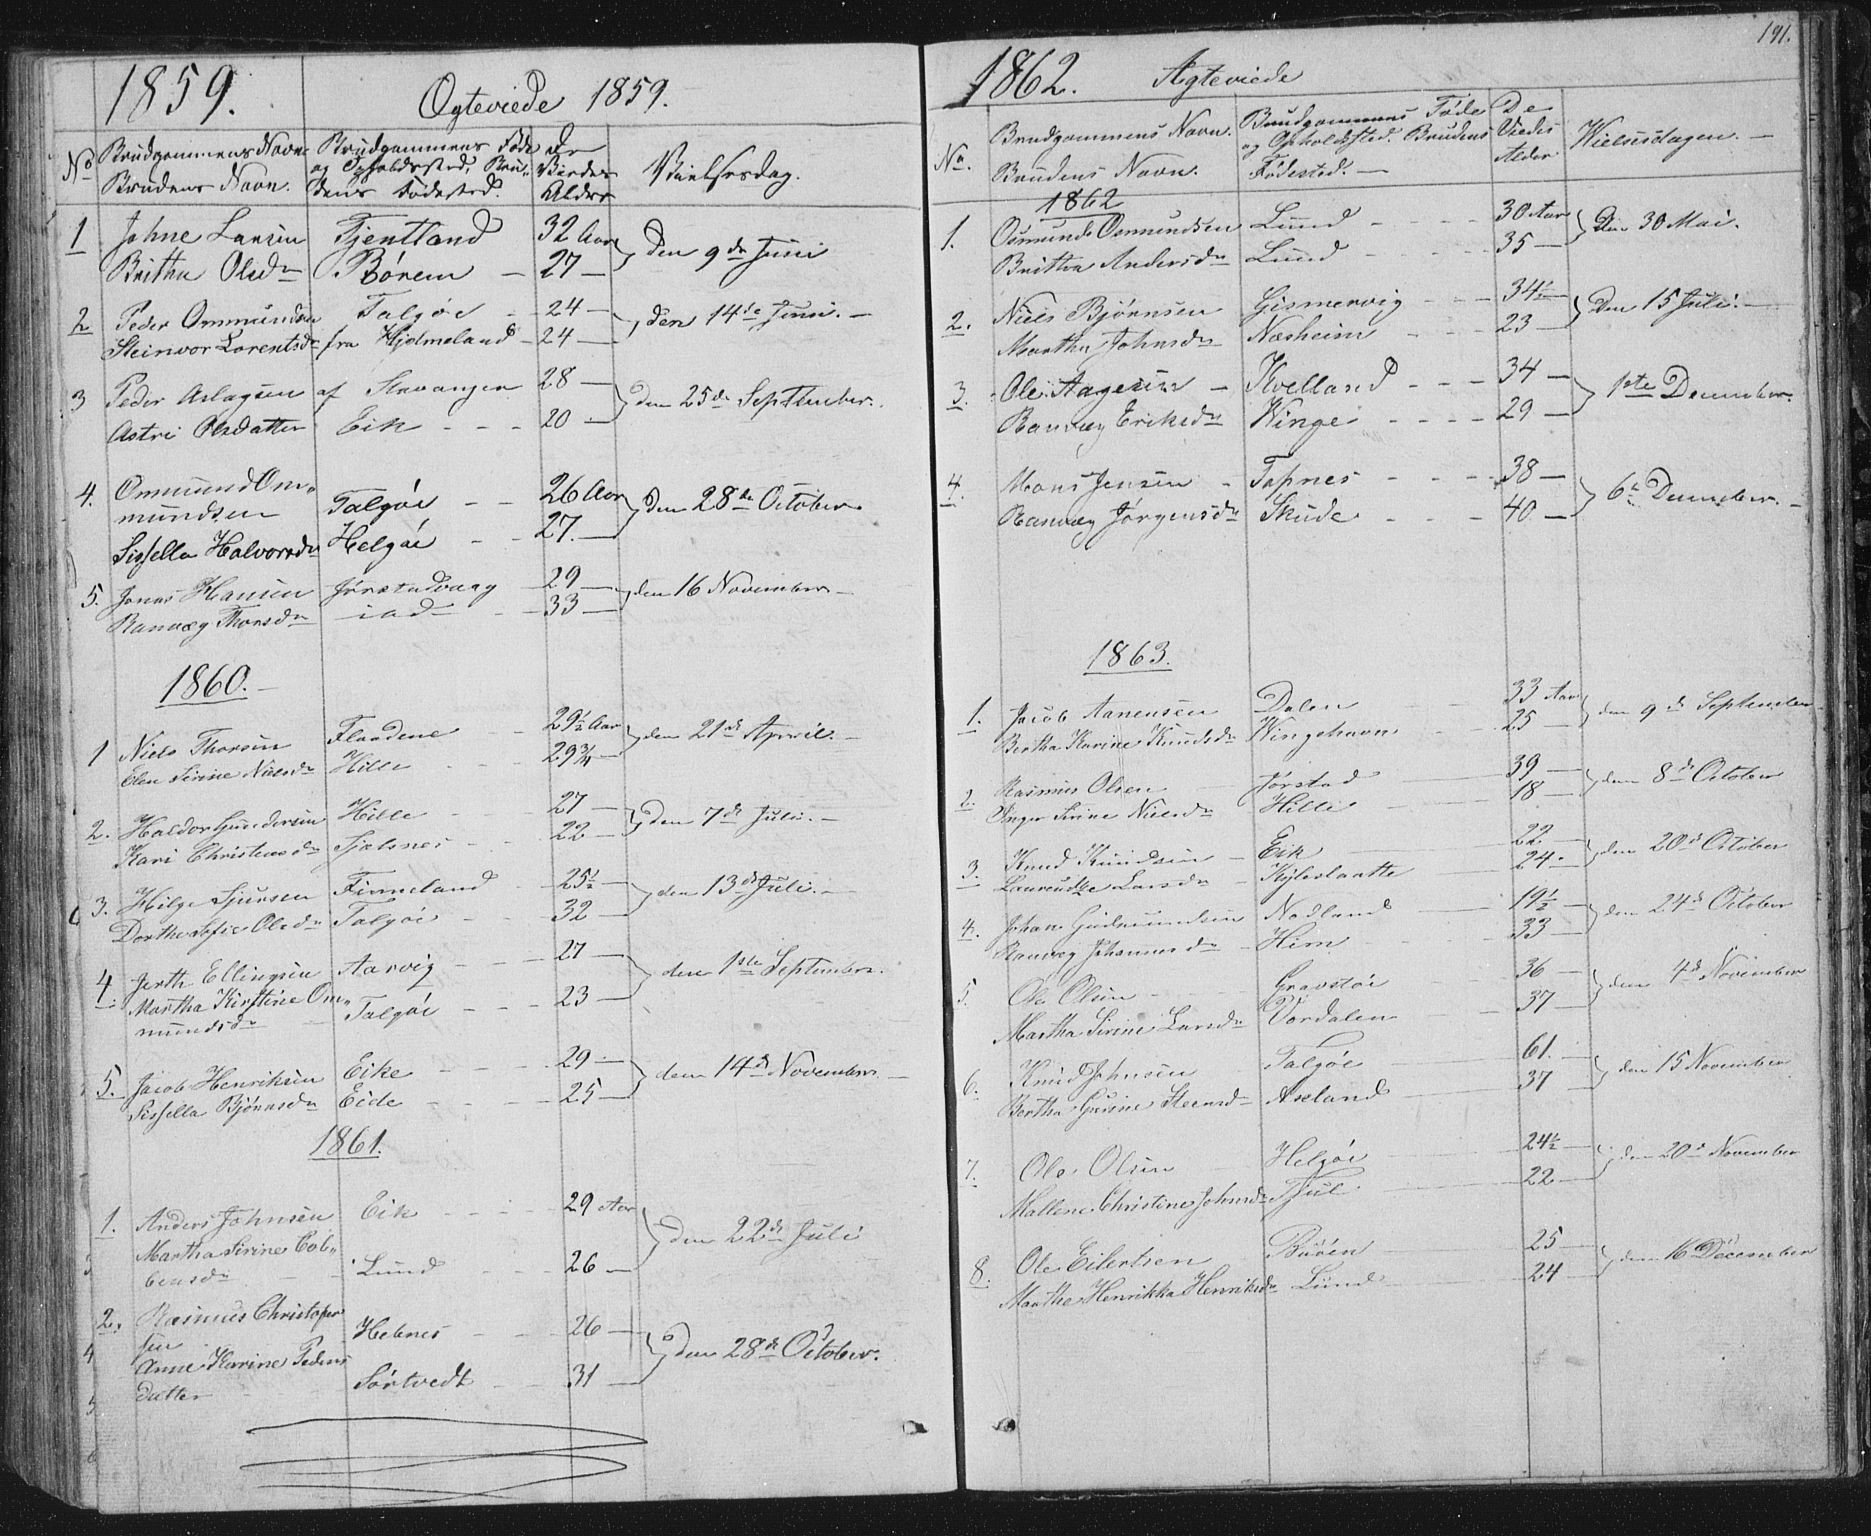 1859.
Egteviede 1859.
No
Brudgommens Navn
Brudens Navn.
Brudgommens Føde
og Opholdssted, Bru-
dens Fødested.
De
Viedes
Alder
Vielsesdag.
1 Johne Larsen Fjentland 32 Aar
Britha Olsdr Børem - 27 - den 9de Juni
2 Peder Ommundsen Talgøe - 24 -
Steinvor Lorentsdr fra Hjelmeland - 24 - den 14de Juni. -
3 Peder Aslagsen af Stavanger 28 -
Astri Olsdatter Eik - - - 20 - den 25de September.
4. Ommund Om-
mundsen Talgøe - - 26 Aar
Sissella Halvorsdr Helgøe - - 27. - den 28de October.
5. Jonas Hansen Jørstadvaag - 29 -
Ranveg Thorsdr - iad - - 33 - den 16 November -
1860. -
1 Niels Thorsen Flaadene - - 29½ Aar
Elen Serine Nielsdr Hille - - - 29¾ - den 21de April. -
2. Haldor Gundersen Hille - - 27 -
Kari Christensdr Fjælsnes - - 22 - den 7de Juli. -
3. Hilge Sjursen Finneland - 25½ -
Dorthe Sofie Olsdr Talgøe - - 32 - den 13de Juli. -
4. Jerth Ellingsen Aarvig - - - 27 -
Martha Kirstine Om-
mundsdr Talgøe - - - 23 - den 1ste September.
5. Jacob Henriksen Eike - - - 29 -
Sissella Bjørnsdr Eide - - - 25 - den 14de November. -
1861.
1. Anders Johnsen Eik - - - - 29 Aar
Martha Serine Col-
bensdr Lund - - - 26 - den 22de Juli
2. Rasmus Christofer
sen Hebnes - - 26 -
Anne Karine Peders
datter Sørtvedt - - 31 - den 28de October.
191.
1862. Ægteviede
No.
Brudgommens Navn.
Brudens Navn.
Brudgommens Føde
og Opholdssted. Brudens
Fødested. -
De
Viedes
Alder
Vielsesdagen. -
1862
1. Osmund Osmundsen Lund - - - 30 Aar
Brittha Andersdr Lund - - - - 35 - Den 30 Mai.
2. Niels Bjørnsen Gismervig - - - 34½ -
Martha Johnsdr Næsheim - - 23 - Den 15 Juli. -
3. Ole Aagesen - Kvelland - - - 34 -
Ranveg Eriksdr Winge - - - - 29 - 1ste December.
4. Mons Jensen - Topnes - - - - 38 -
Ranveg Jørgensdr Skude - - - 40 - 6te December. -
1863.
1. Jacob Aanensen Dalen 33 Aar
Bertha Karine Knudsdr Wingehavn - - 25 - den 9de September
2. Rasmus Olsen Jørstad 39 -
Inger Serine Nielsdr Hille - 18 - den 8de October
3. Knud Knudsen - Eik 22 -
Larsdr - 24 - den 20de October
4. Johan Gudmundsen Nadland 19½ -
Ranveg Johannesdr - Hiim 33 - den 24de October
5. Ole Olsen - - Gravstøe 36 -
Martha Serine Larsdr Vordalen - 37 - den 4de November
6. Knud Johnsen Talgøe - 61. -
Bertha Gurine Steensdr Axeland 37 - den 15 November
7. Ole Olsen Helgøe 24½ -
Mallene Christine Johnsdr Fjul 22 - den 20de November
8. Ole Eilertsen Buøen 25 -
Marthe Henrikka Henriksdr Lund 24 - den 16 December